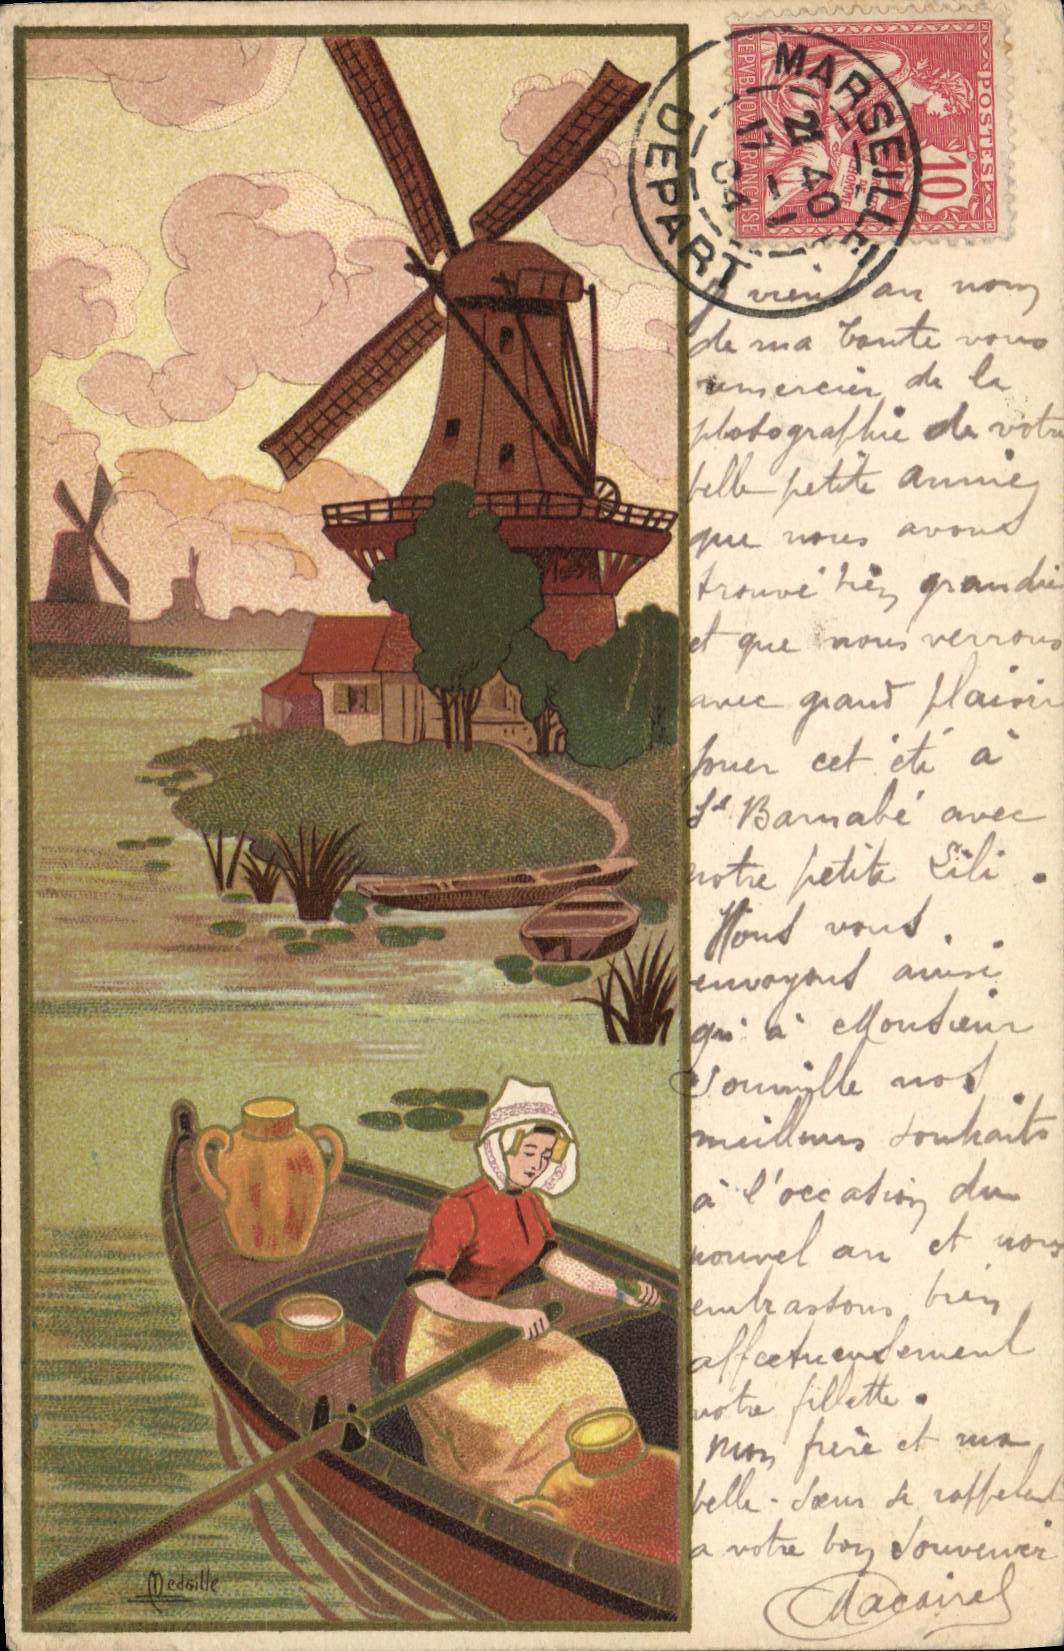 MARSEILLE
DEPART
21 40
17 - 1
04
REPVBLIQVE FRANÇAISE
POSTES
10
DE L'HOMME
vien au nom
de ma tante vous
remercier de la
photographie de votre
belle petite annie
que nous avons
trouvé bien grandie
et que nous verrons
avec grand plaisir
jouer cet été à
St Barnabé avec
notre petite Lili.
Nous vous
envoyons ainsi
qu'à Monsieur
nos
meilleurs souhaits
à l'occasion du
nouvel an et nous
embrassons bien
affectueusement
votre fillette.
Mon frère et ma
belle-soeur se rappelent
a votre bon souvenir
Medaille